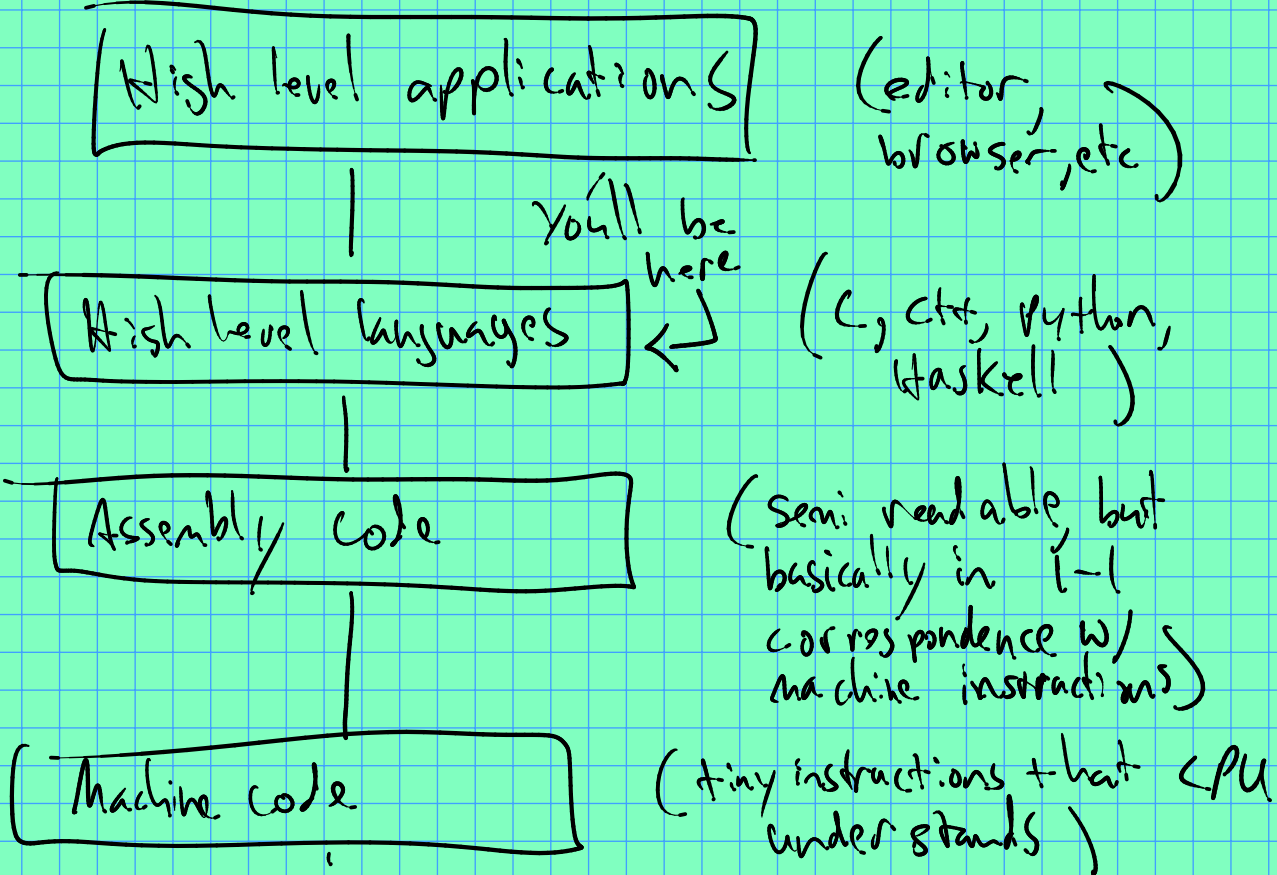 High level applications
(editor,
browser, etc)
You'll be
here
High level languages
(C, C++, Python,
Haskell)
Assembly code
(semi readable, but
basically in 1-1
correspondence w/
machine instructions)
Machine code
(tiny instructions that CPU
understands)